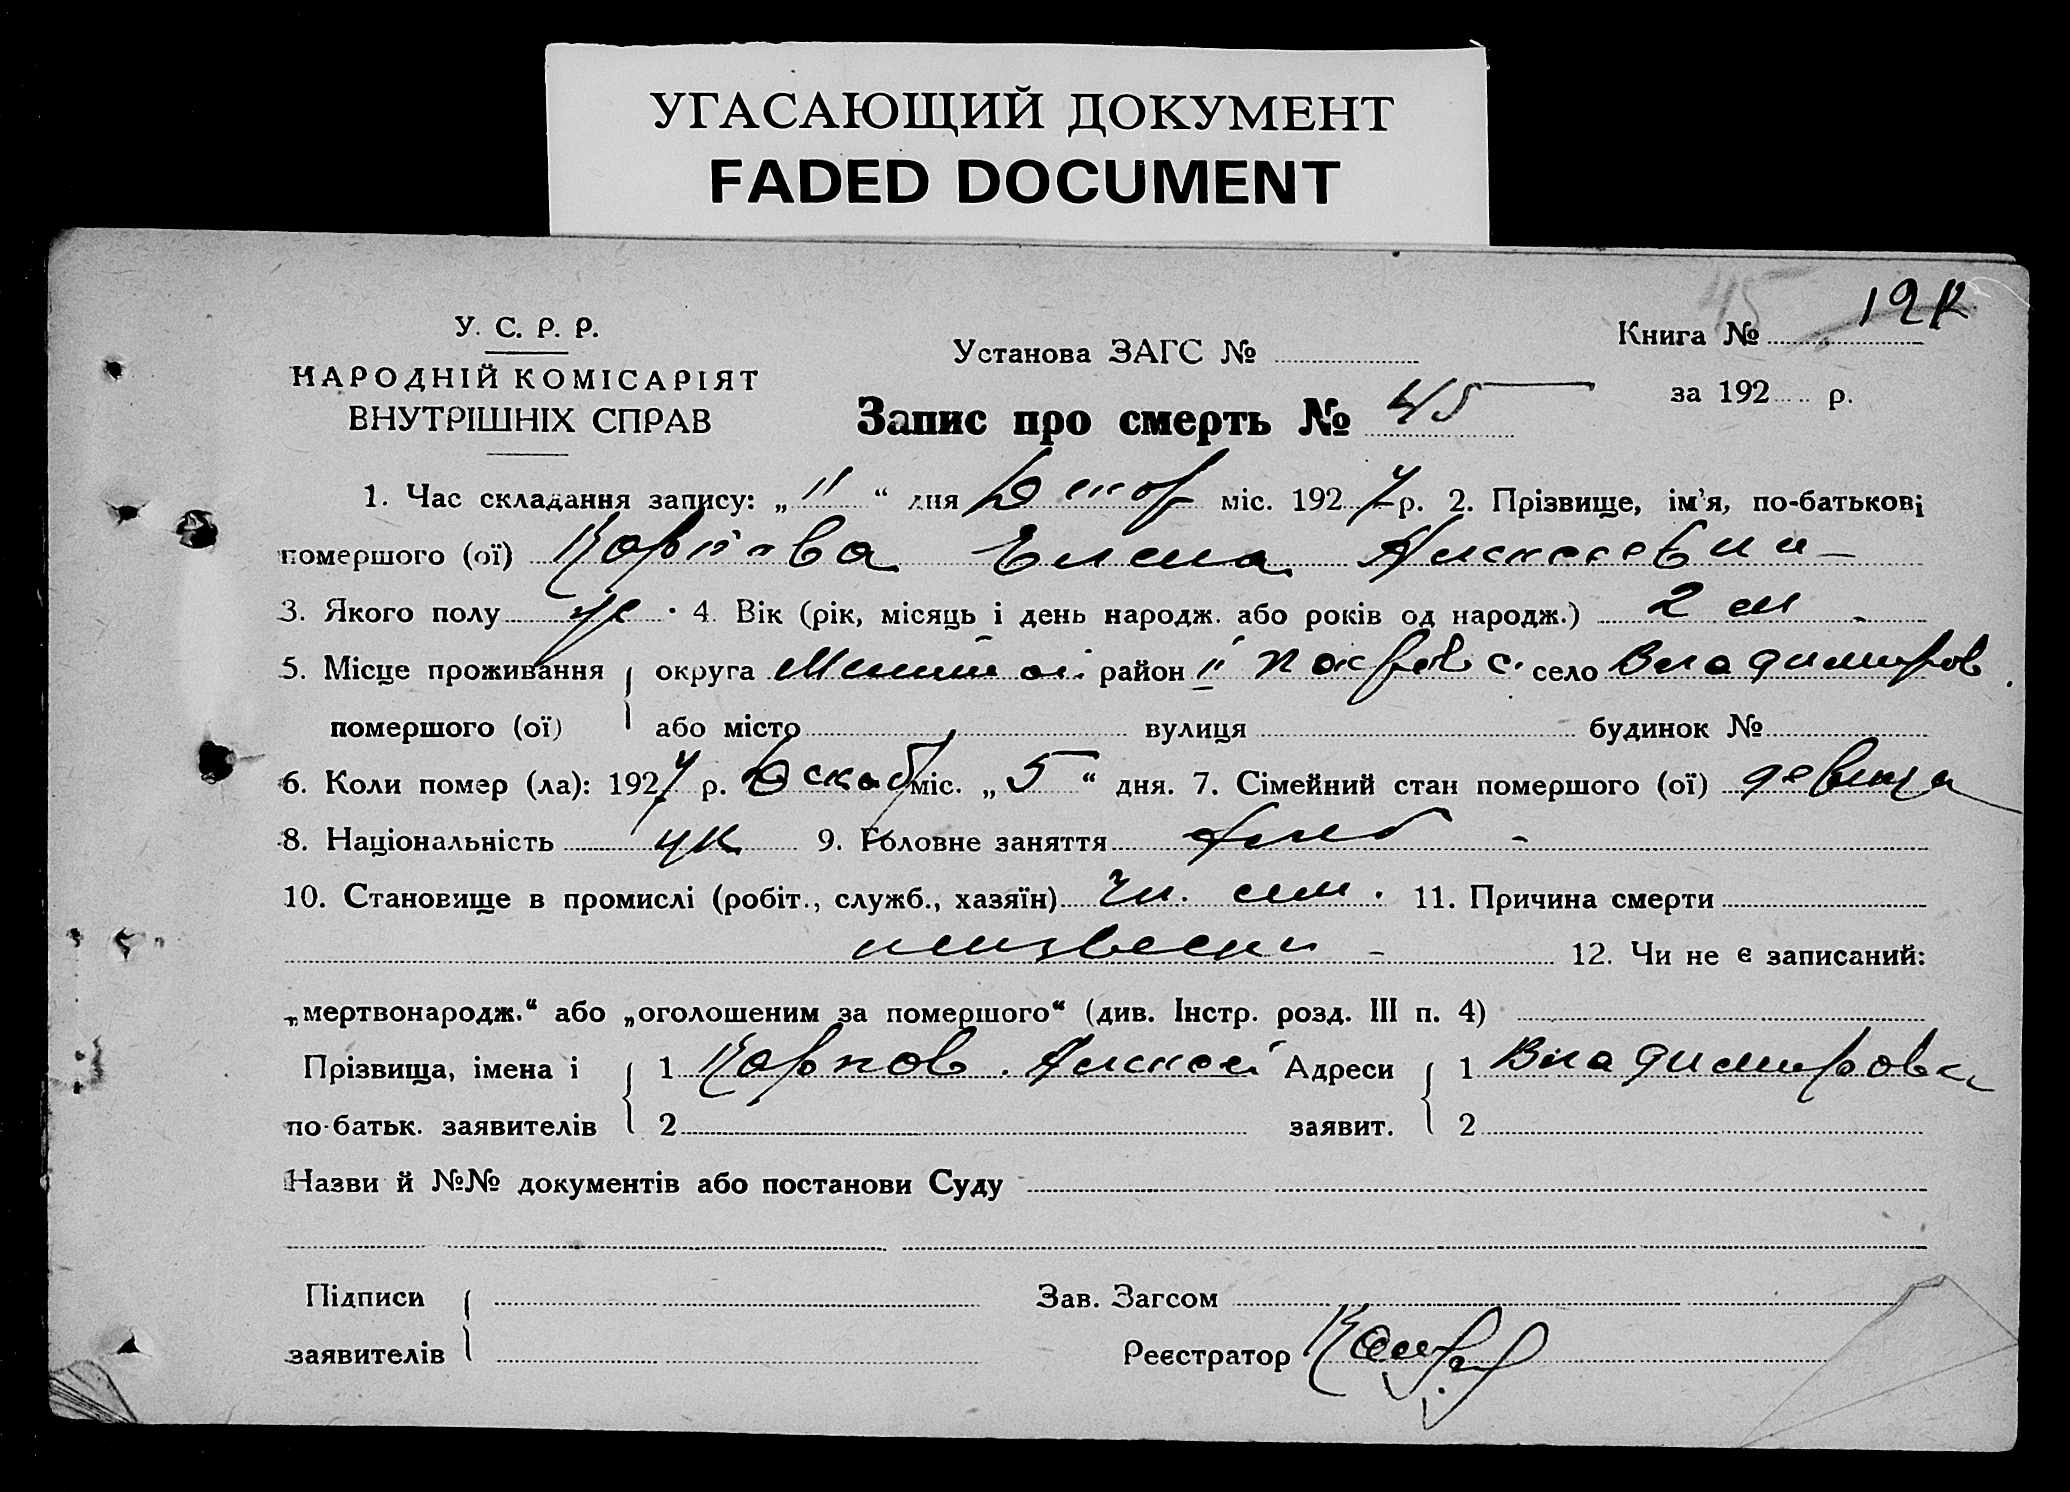 УГАСАЮЩИЙ ДОКУМЕНТ
FADED DOCUMENT
У. С. Р. Р.
НАРОДНІЙ КОМІСАРІЯТ
ВНУТРІШНІХ СПРАВ
Установа ЗАГС №
Книга № 45 12
за 192 р.
Запис про смерть № 45
1. Час складання запису: „ 11 “ дня міс. 1927 р. 2. Прізвище, ім'я, по-батькові
помершого (ої) Карпова Елена Алексеевна
3. Якого полу ж 4. Вік (рік, місяць і день народж. або років од народж.) 2 м
5. Місце проживання округа район II Покровс. село Владимиров
помершого (ої) або місто вулиця будинок №
6. Коли помер (ла): 1927 р. міс. „ 5 “ дня. 7. Сімейний стан помершого (ої) девица
8. Національність ук 9. Головне заняття хлеб
10. Становище в промислі (робіт., служб., хазяїн) Чл. сем. 11. Причина смерти
неизвестн 12. Чи не є записаний:
„мертвонародж.“ або „оголошеним за помершого“ (див. Інстр. розд. III п. 4)
Прізвища, імена і 1 Карпов Алексей Адреси 1 Владимировка
по-батьк. заявителів 2 заявит. 2
Назви й №№ документів або постанови Суду
Підписи Зав. Загсом
заявителів Реєстратор